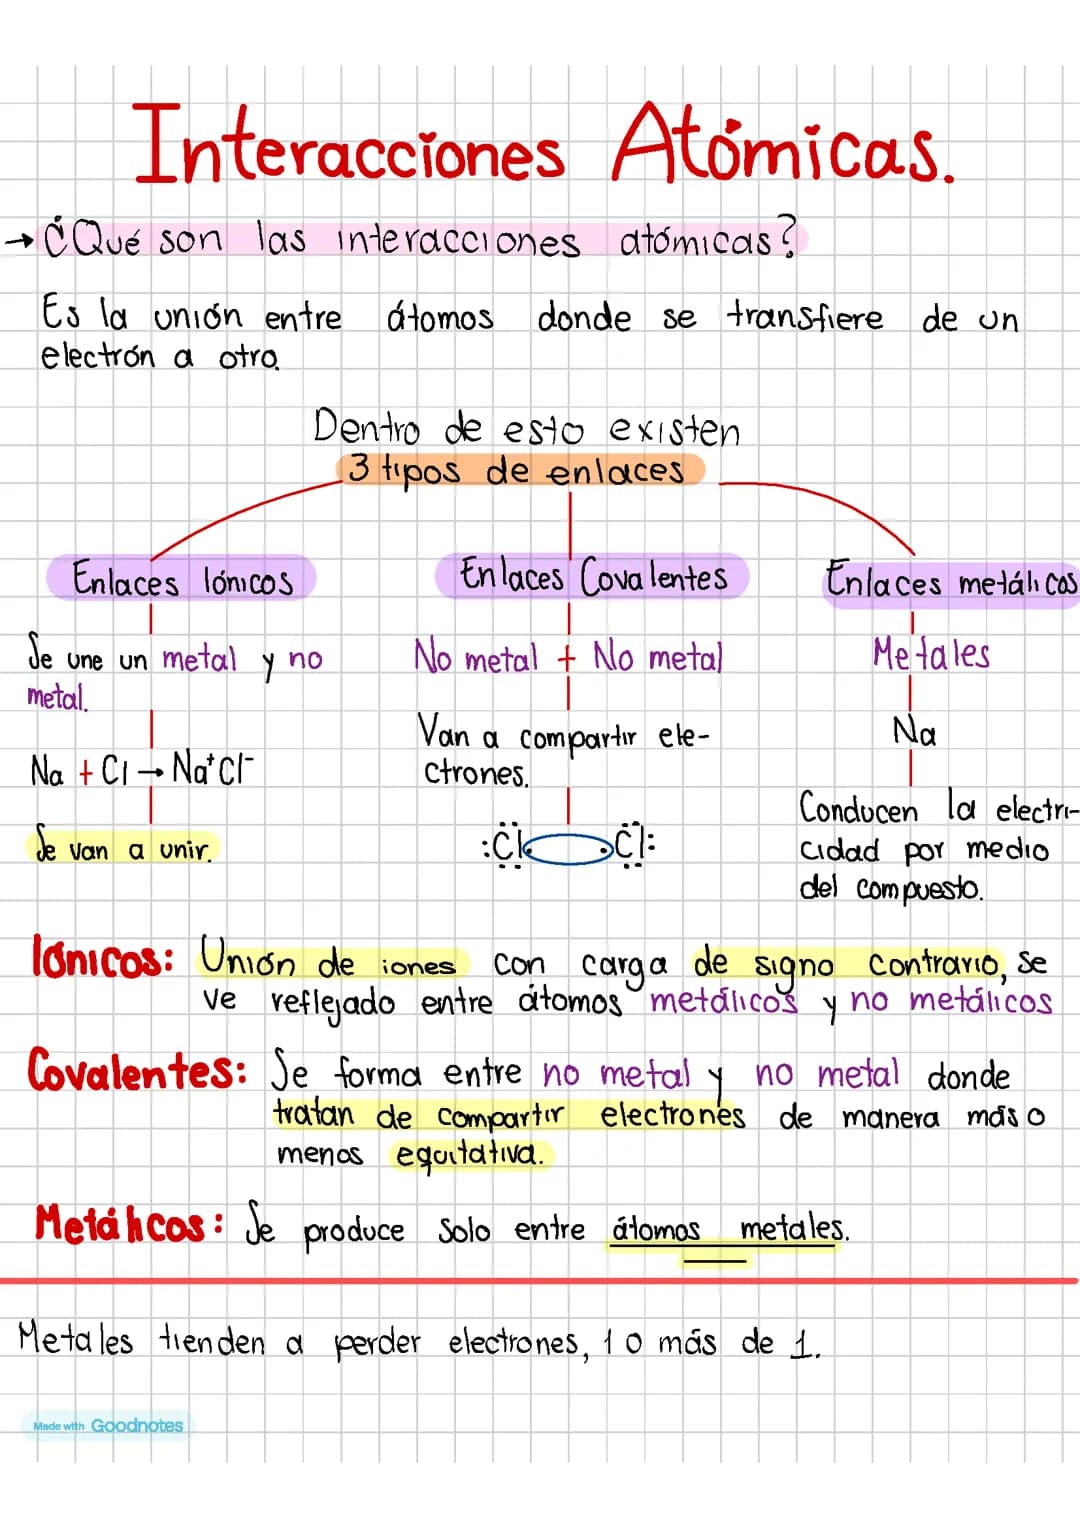 Interacciones Atómicas.
→ ¿Qué son las interacciones atómicas?
Es la unión entre átomos donde se transfiere de un
electrón a otro.
Dentro de esto existen
3 tipos de enlaces
Enlaces Iónicos
Se une un metal y no
metal.
Na + Cl → Na⁺Cl⁻
Se van a unir.
Enlaces Covalentes
No metal + No metal
Van a compartir ele-
ctrones.
:Cl. .Cl:
Enlaces metálicos
Metales
Na
Conducen la electri-
cidad por medio
del compuesto.
Iónicos: Unión de iones con carga de signo contrario, se
ve reflejado entre átomos metálicos y no metálicos
Covalentes: Se forma entre no metal y no metal donde
tratan de compartir electrones de manera más o
menos equitativa.
Metálicos: Se produce solo entre átomos metales.
Metales tienden a perder electrones, 1 o más de 1.
Made with Goodnotes